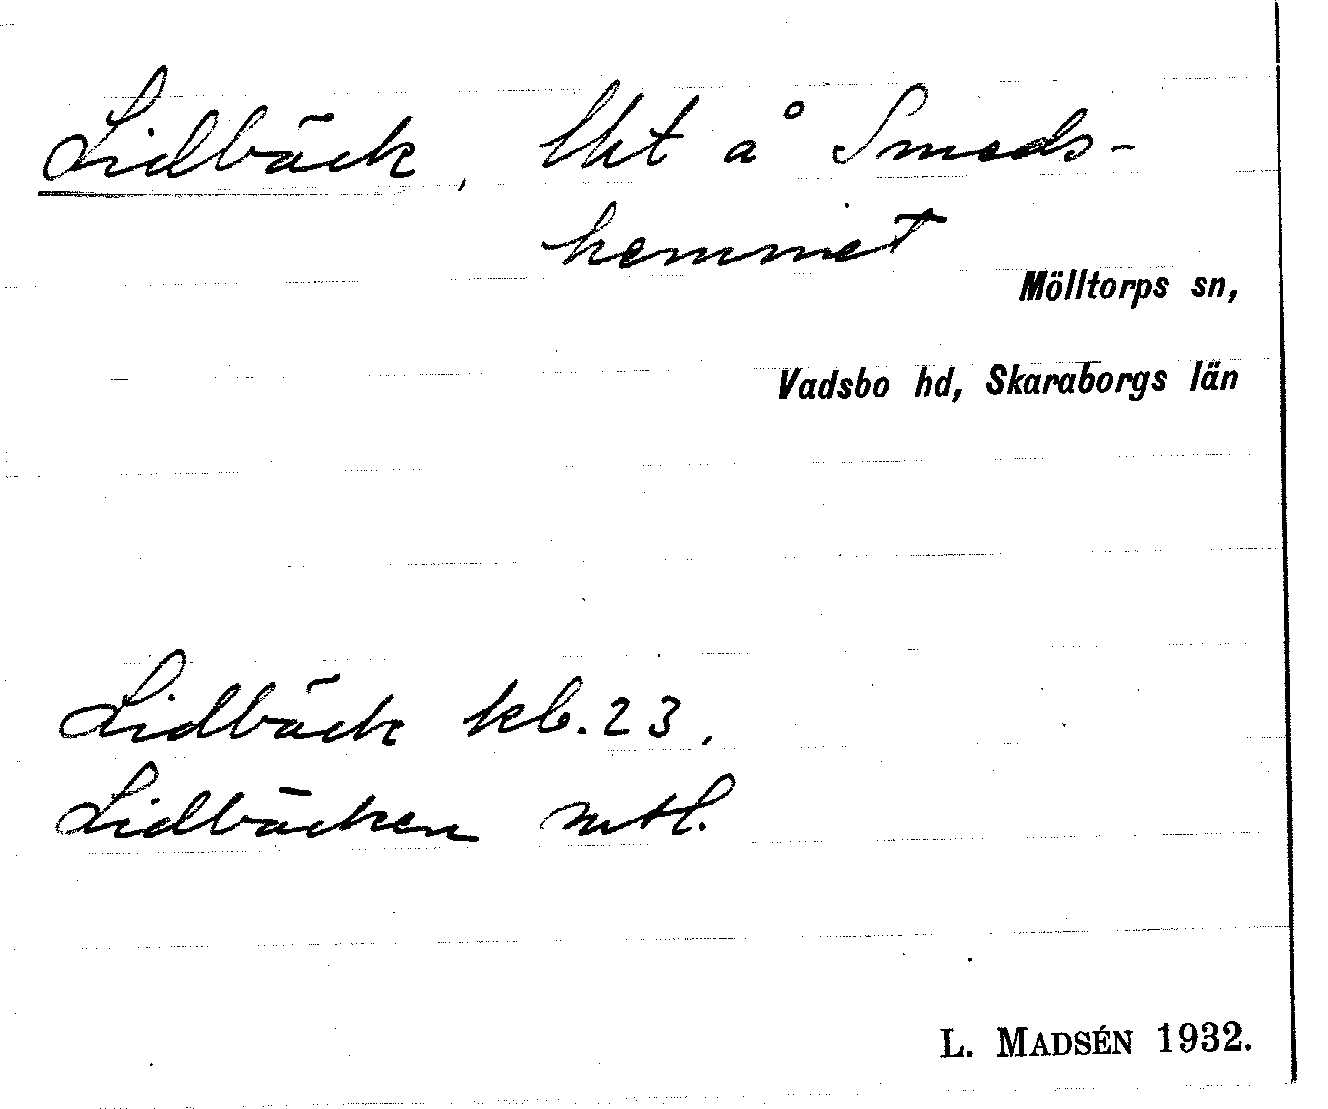 Lidbäck, lht å Smeds-
hemmet
Mölltorps sn,
Vadsbo hd, Skaraborgs län
Lidbäck kb. 23.
Lidbäcken mtl.
L. MADSÉN 1932.